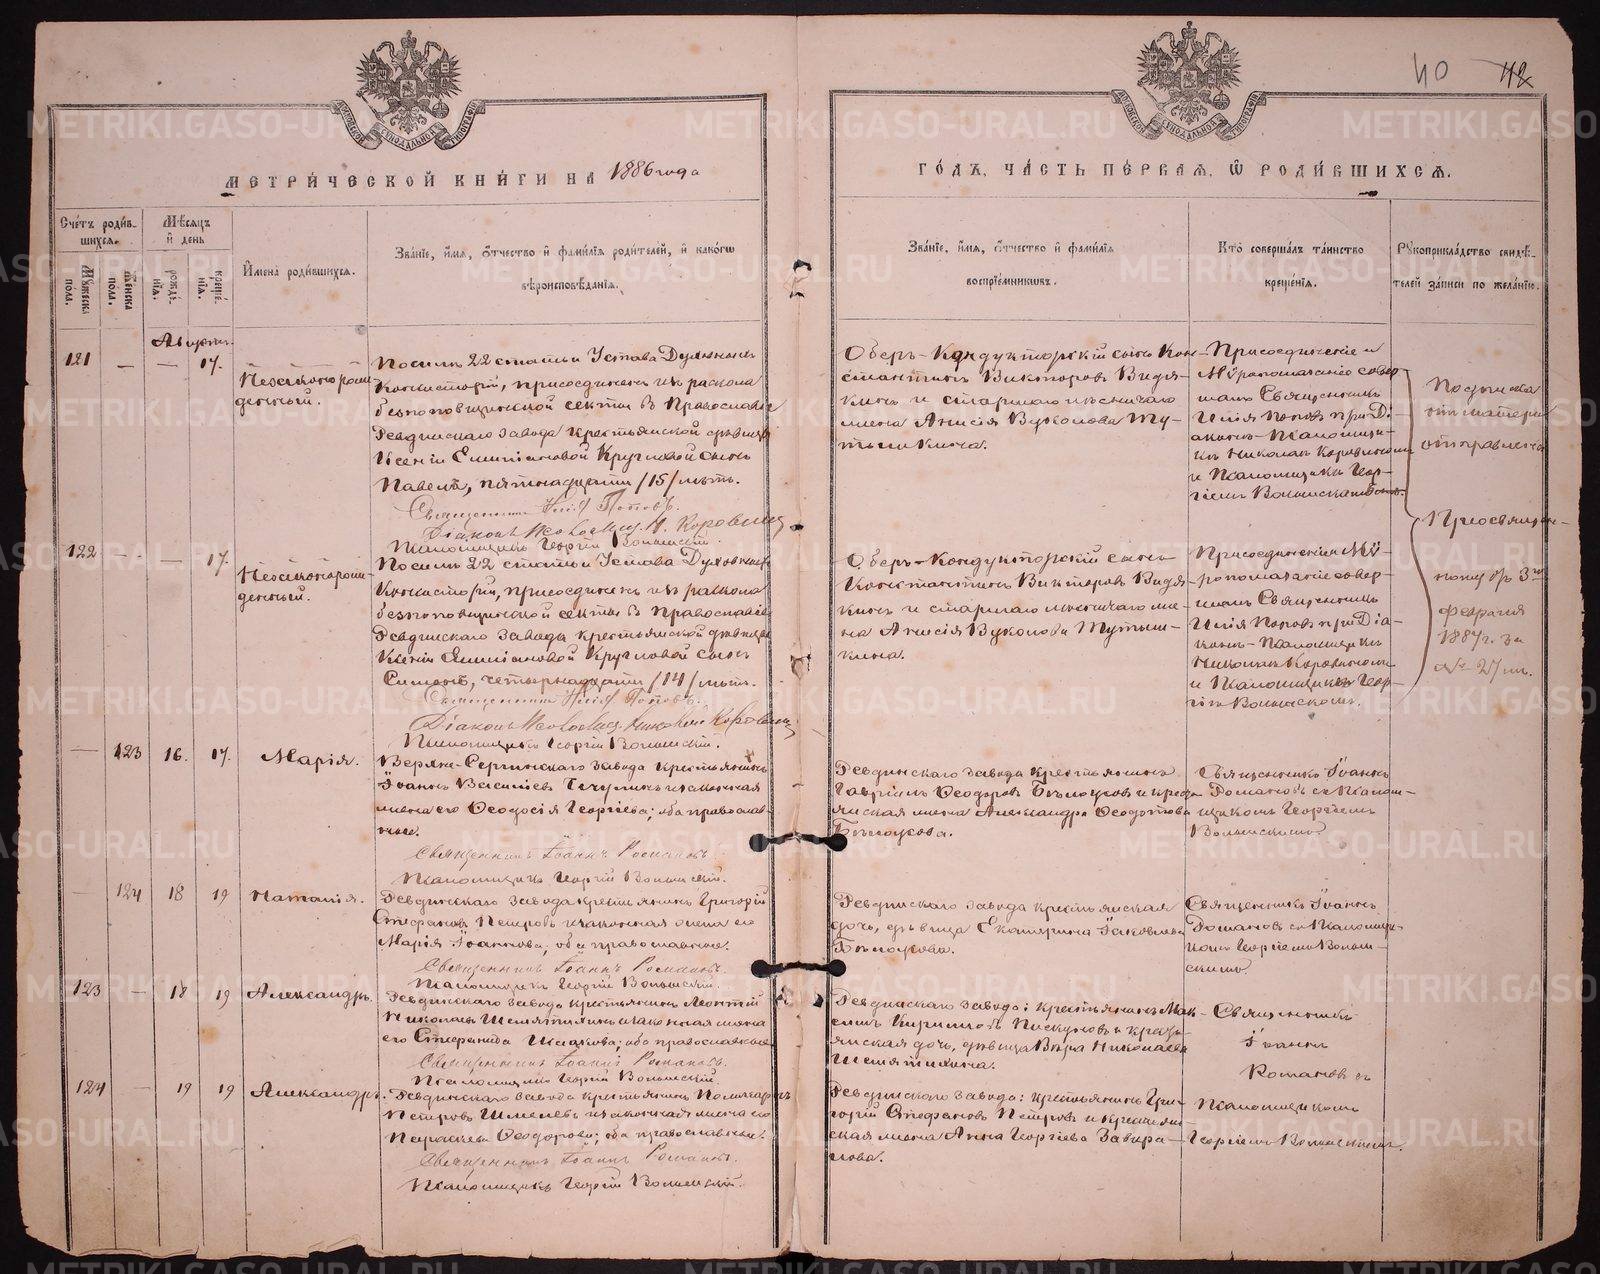 40 42
МЕТРИ́ЧЕСКОЙ КНИ́ГИ НА 1886 года
ГО́ДЪ, ЧА́СТЬ ПЕ́РВАЯ, Ѿ РОДИ́ВШИХСѦ.
Сче́тъ роди́в-
шихсѧ.
Мѣ́сѧцъ
и҆ де́нь
Мꙋ́жеска
по́ла.
Же́нска
по́ла.
рожде́-
нїѧ.
креще́-
нїѧ.
И҆мена̀ роди́вшихсѧ.
Зва́нїе, и҆́мѧ, ѻ҆́тчество и҆ фами́лїѧ роди́телей, и҆ како́гѡ
вѣроисповѣ́данїѧ.
Зва́нїе, и҆́мѧ, ѻ҆́тчество и҆ фами́лїѧ
воспрїе́мникѡвъ.
Кто̀ соверша́лъ та́инство
креще́нїѧ.
Рꙋкоприкла́дство свидѣ́-
телей за́писи по жела́нїю.
Августъ
121 — — 17.
Незаконорож-
денный.
По силѣ 22 статьи Устава Духовныхъ
Консисторій, присоединенъ изъ раскола
безпоповщинской секты въ Православіе
Ревдинскаго завода крестьянской дѣвицы
Ксеніи Емиліановой Кругловой сынъ
Павелъ, пятнадцати /15/ лѣтъ.
Священникъ Илія Поповъ.
Діаконъ Псаломщ. Н. Коровинъ
Псаломщикъ Георгій Волынскій.
Оберъ-Кондукторскій сынъ Кон-
стантинъ Викторовъ Видя-
кинъ и старшаго лѣсничаго
жена Анисія Вуколова Ту-
тышкина.
Присоединеніе и
Мѵропомазаніе совер-
шалъ Священникъ
Илія Поповъ при Ді-
аконѣ-Псаломщи-
кѣ Николаѣ Коровинѣ
и Псаломщикѣ Геор-
гіемъ Волынскимъ.
122 — — 17.
Незаконорож-
денный.
По силѣ 22 статьи Устава Духовныхъ
Консисторій, присоединенъ изъ раскола
безпоповщинской секты въ Православіе
Ревдинскаго завода крестьянской дѣвицы
Ксеніи Емиліановой Кругловой сынъ
Симеонъ, четырнадцати /14/ лѣтъ.
Священникъ Илія Поповъ.
Діаконъ Псаломщ. Николай Коровинъ
Псаломщикъ Георгій Волынскій.
Оберъ-Кондукторскій сынъ
Константинъ Викторовъ Видя-
кинъ и старшаго лѣсничаго же-
на Анисія Вуколова Тутыш-
кина.
Присоединеніе и Мѵ-
ропомазаніе совер-
шалъ Священникъ
Илія Поповъ при Діа-
конѣ-Псаломщикѣ
Николаѣ Коровинѣ
и Псаломщикѣ Геор-
гіѣ Волынскомъ.
Подписка
отъ матери
отправлена
Преосвящен-
ному отъ 3го
февраля
1887 г. за
№ 27 м.
— 123 16. 17. Марія.
Верхне-Сергинскаго завода крестьянинъ
Іоаннъ Василіевъ и законная
жена его Ѳеодосія Георгіева; оба православ-
ные.
Священникъ Іоаннъ Романовъ.
Псаломщикъ Георгій Волынскій.
Ревдинскаго завода крестьянинъ
Гавріилъ Ѳеодоровъ Бѣлоуковъ и кресть-
янская жена Александра Ѳеодотова
Бѣлоукова.
Священникъ Іоаннъ
Романовъ съ Псалом-
щикомъ Георгіемъ
Волынскимъ.
— 124 18 19 Наталія.
Ревдинскаго завода крестьянинъ Григорій
Стефановъ Петровъ и законная жена его
Марія Іоаннова, оба православные.
Священникъ Іоаннъ Романовъ.
Псаломщикъ Георгій Волынскій.
Ревдинскаго завода крестьянская
дочь, дѣвица Екатерина Іаковлева
Бѣлоукова.
Священникъ Іоаннъ
Романовъ съ Псаломщи-
комъ Георгіемъ Волын-
скимъ.
123 — 18 19 Александръ.
Ревдинскаго завода крестьянинъ Леонтій
Николаевъ Шелятихинъ и законная жена
его Стефанида Исаакова; оба православные.
Священникъ Іоаннъ Романовъ.
Псаломщикъ Георгій Волынскій.
Ревдинскаго завода: крестьянинъ Мак-
симъ Кирилловъ Пискуновъ и кресть-
янская дочь, дѣвица Вѣра Николаева
Шелятихина.
Священникъ
Іоаннъ
Романовъ съ
124 — 19 19 Александръ.
Ревдинскаго завода крестьянинъ Поликарпъ
Петровъ Шмелевъ и законная жена его
Параскева Ѳеодорова; оба православные.
Священникъ Іоаннъ Романовъ.
Псаломщикъ Георгій Волынскій.
Ревдинскаго завода: крестьянинъ Гри-
горій Стефановъ Петровъ и крестьян-
ская жена Анна Георгіева
Псаломщикомъ
Георгіемъ Волынскимъ.
METRIKI.GASO-URAL.RU